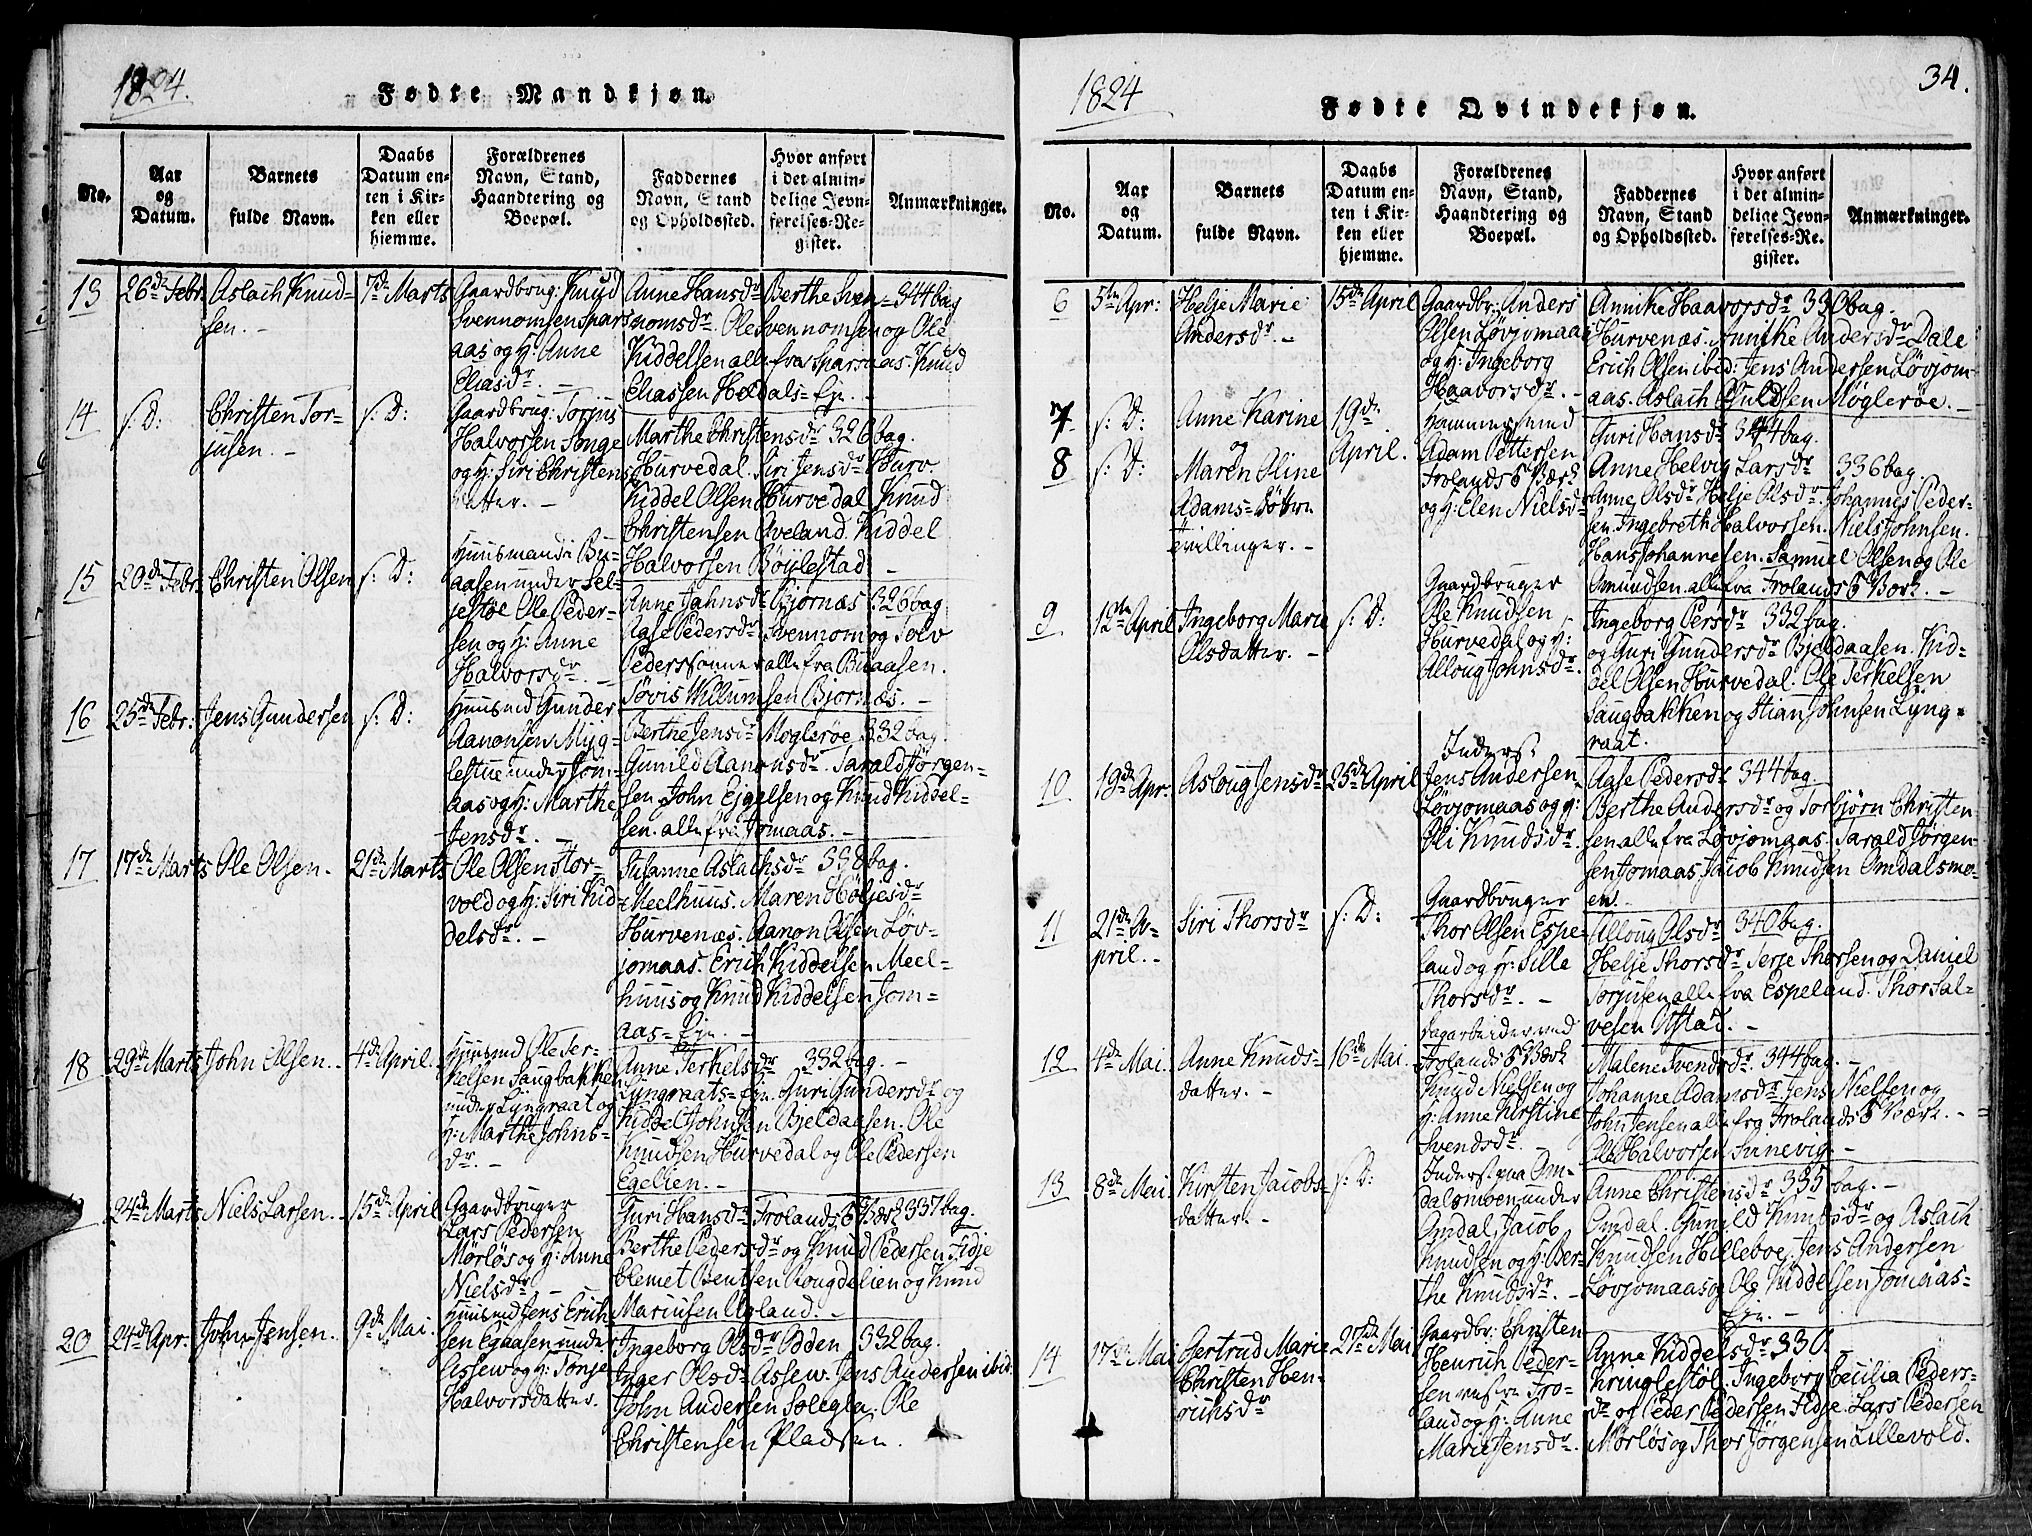 1824.
Fødte Mandkjøn.
No.
Aar og Datum.
Barnets fulde Navn.
Daabs Datum enten i Kirken eller hjemme.
Forældrenes Navn, Stand, Haandtering og Boepæl.
Faddernes Navn, Stand og Opholdssted.
Hvor anført i det almindelige Jevnførelses-Register.
Anmærkninger.
13
26de Febr.
Aslach Knud-
sen. -
7de Marts
Gaardbrug: Knud
Svennomsen Spars
aas og H: Anne
Eliasdr. -
Anne Hansdr Berthe Sven = 344 bag
nomsdr. Ole Svennomsen og Ole
Kiddelsen alle fra Sparsaas. Knud
Eliassen Heldals-Eje. -
14
s: D:
Christen Tor-
jusen. -
s: D:
Gaardbrug: Torjus
Halvorsen Songe
og H: Siri Christens
datter. -
Marthe Christensdr 326 bag.
Hurvedal. Siri Jensdr Hurv.
Kiddel Olsen Hurvedal Knud
Christensen Oveland. Kiddel
Halvorsen Bøylestad
15
20de Febr.
Christen Olsen
s: D:
Huusmand i Bu-
aasen under Sel-
jestøe Ole Peder-
sen og H: Anne
Halvorsdr. -
Anne Jahnsdr Bjørnæs 326 bag
Aase Pedersdr Svennom og Tolv
Pederssønner alle fra Buaasen.
Søvis Willumsen Bjørnæs. -
16
25de Febr:
Jens Gundersen
s: D:
Huusmd Gunder
Aanonsen Myg-
lestue under Jom-
aas og H: Marthe
Jensdr. -
Berthe Jensdr Møglerøe 332 bag.
Gunild Aanonsdr. Tarald Jørgen-
sen John Ejgelsen og Knud Kiddel-
sen. alle fra Jomaas. -
17
17de Marts
Ole Olsen.
21de Marts
Ole Olsen Stor-
vold og H: Siri Kid-
delsdr. -
Susanne Aslachsdr 338 bag.
Meelhuus. Maren Høljesdr
Hurvenæs. Aanon Olsen Løv-
jomaas. Erich Kiddelsen Meel-
huus og Knud Kiddelsen Jom-
aas-Eje. -
18
29de Marts
John Olsen.
4de April.
Huusmd Ole Ter-
kelsen Saugbakken
under Lyngraat og
H: Marthe Johns-
dr. -
Anne Terkelsdr 332 bag. -
Lyngraats-Eje. Guri Gundersdr og
Kiddel Johnsen Bjeldaasen. Ole
Knudsen Hurvedal og Ole Pedersen
Egelien. -
24de Marts
Niels Larsen.
15de April
Gaardbruger
Lars Pedersen
Mørløs og H: Anne
Nielsdr. -
Guri Hansdr Frolands Værk 337 bag.
Berthe Pedersdr og Knud Pedersen Fidje
Clemet Bentsen Rougdelien og Knud
Mariusen Ugland. -
20
24de Apr.
John Jensen.
9de Mai.
Huusmd Jens Erich-
sen Egaasen under
Assew og H: Tonje
Halvorsdatter.
Ingeborg Olsdr Odden 332 bag.
Inger Olsdr Assew. Jens Andersen ibid.
John Andersen Solegla. Ole
Christensen Pladsen.
1824
34.
Fødte Qvindekjøn.
No.
Aar og Datum.
Barnets fulde Navn.
Daabs Datum enten i Kirken eller hjemme.
Forældrenes Navn, Stand, Haandtering og Boepæl.
Faddernes Navn, Stand og Opholdssted.
Hvor anført i det almindelige Jevnførelses-Register.
Anmærkninger.
6
5te Apr:
Helje Marie
Andersdr. -
15de April
Gaardbr: Anders
Olsen Løvjomaas
og H: Ingeborg
Haavorsdr. -
Annike Haavorsdr 330 bag.
Hurvenæs. Annike Andersdr Dale
Erich Olsen ibid: Jens Andersen Løvjom-
aas. Aslach Guldsen Møglerøe. -
7
s: D:
Anne Karine
og
8
s: D:
Maren Oline
Adams-Døttre
Tvillinger. -
19de
April.
Hammersmed
Adam Pettersen
Frolands Værk
og H: Elen Nielsdr
Guri Hansdr 344 bag.
Anne Helvig Larsdr 336 bag
Anne Olsdr Helje Olsdr. Johannes Peder-
sen. Ingebreth Halvorsen. Niels Johnsen.
Hans Johannesen. Samuel Olsen og Ole
Omundsen. alle fra Frolands Værk. -
9
12te April
Ingeborg Marie
Olsdatter. -
s: D:
Gaardbruger
Ole Knudsen
Hurvedal og H:
Alloug Johnsdr.
Ingeborg Persdr 332 bag.
og Guri Gundersdr Bjeldaasen. Kid-
del Olsen Hurvedal. Ole Terkelsen
Saugbakken og Stian Johnsen Lyng-
raat.
10
19de Apr.
Asloug Jensdr
25de April
Inderst
Jens Andersen
Løvjomaas og H:
Oli Knudsdr.
Aase Pedersdr 344 bag
Berthe Andersdr og Torbjørn Christen-
sen alle fra Løvjomaas. Tarald Jørgen-
sen Jomaas. Jacob Knudsen Omdalsmo-
en.
11
21de A-
pril. -
Siri Thorsdr
s: D:
Gaardbruger
Thor Olsen Espe-
land og H: Sille
Thorsdr. -
Alloug Olsdr 340 bag.
Helje Thorsdr Terje Thorsen og Daniel
Torjusen alle fra Espeland. Thor Sal-
vesen Ufstad. -
12
4de Mai.
Anne Knuds-
datter. -
16de Mai.
Dagarbeider ved
Frolands Værk
Knud Nielsen og
H: Anne Kirstine
Svendsdr. -
Malene Svendsdr. 344 bag. -
Johanne Adamsdr Jens Nielsen og
John Jensen alle fra Frolands Værk. -
Ole Halvorsen Sinevig. -
13
8de Mai
Kirsten Jacobs-
datter. -
s: D:
Inderst paa Om-
dalsmoen under
Omdal, Jacob
Knudsen og H: Ber-
the Knudsdr. -
Anne Christensdr 335 bag. -
Omdal. Gunild Knudsdr og Aslach
Knudsen Hilleboe. Jens Andersen
Løvjomaas og Ole Kiddelsen Jomaas-
Eje. -
14
17de Mai
Gertrud Marie
Christen Hen-
richsdr
27de Mai
Gaardbr: Christen
Henrich Peder-
sen Fro-
land og H: Anne
Marie Jensdr.
Anne Kiddelsdr 330.
Kringlestøl. Ingeborg Cecilia Peders-
dr og Peder Pedersen Fidje. Lars Pedersen
Mørløs og Thor Jørgensen Lillevold.